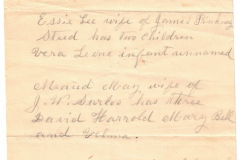 Essie Lee wife of James Pinkney
Steed has two children
Vera Leone infant unnamed
Married May wife of
J. W. has three
David Harrold Mary Bell
and Velma.